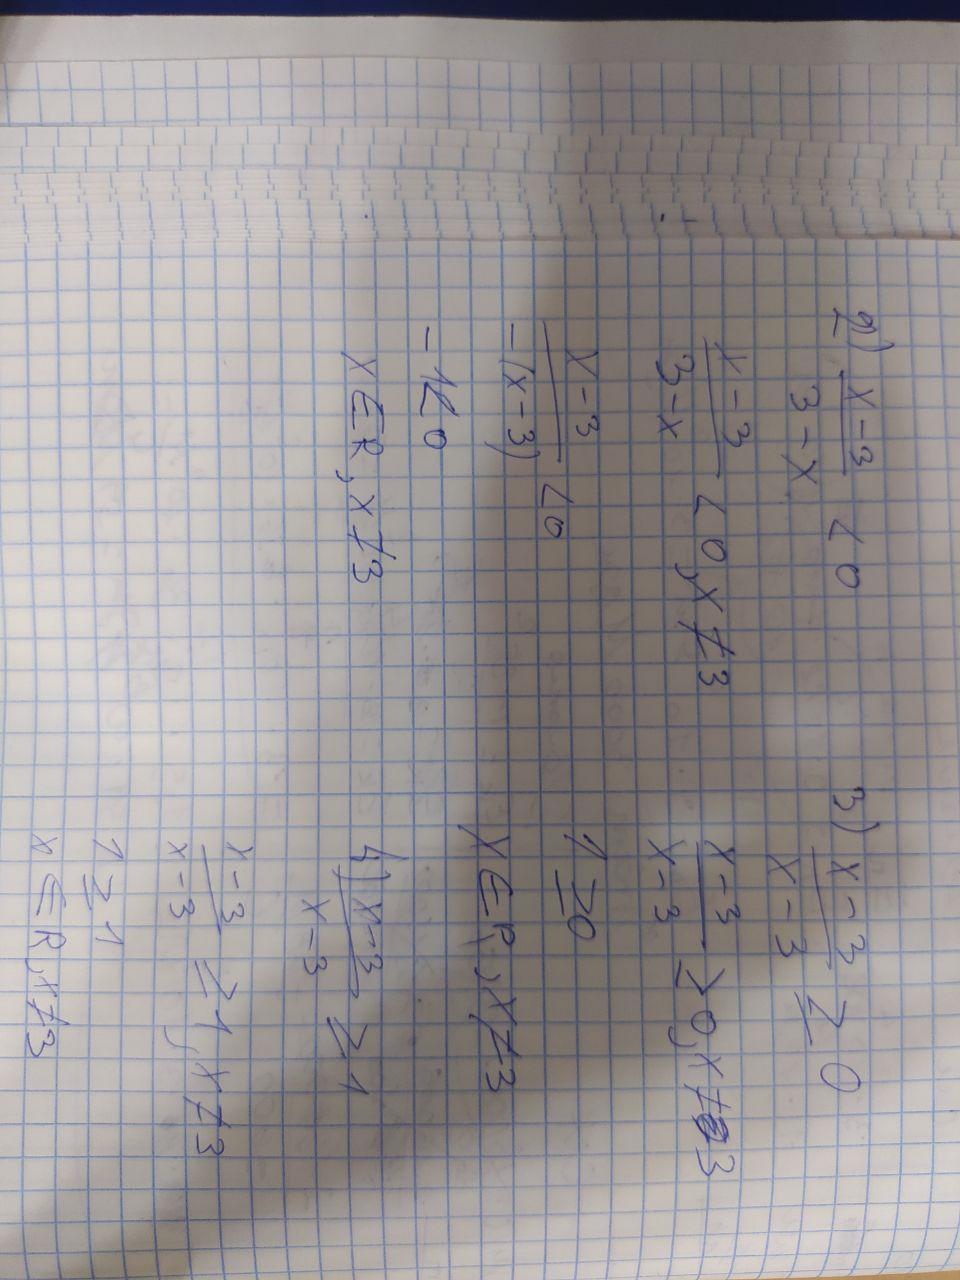 2) x-3/3-x < 0
x-3/3-x < 0, x≠3
x-3/-(x-3) < 0
-1<0
x∈R, x≠3
3) x-3/x-3 ≥ 0
x-3/x-3 ≥ 0, x≠3
1≥0
x∈R, x≠3
4) x-3/x-3 ≥ 1
x-3/x-3 ≥ 1, x≠3
1≥1
x∈R, x≠3